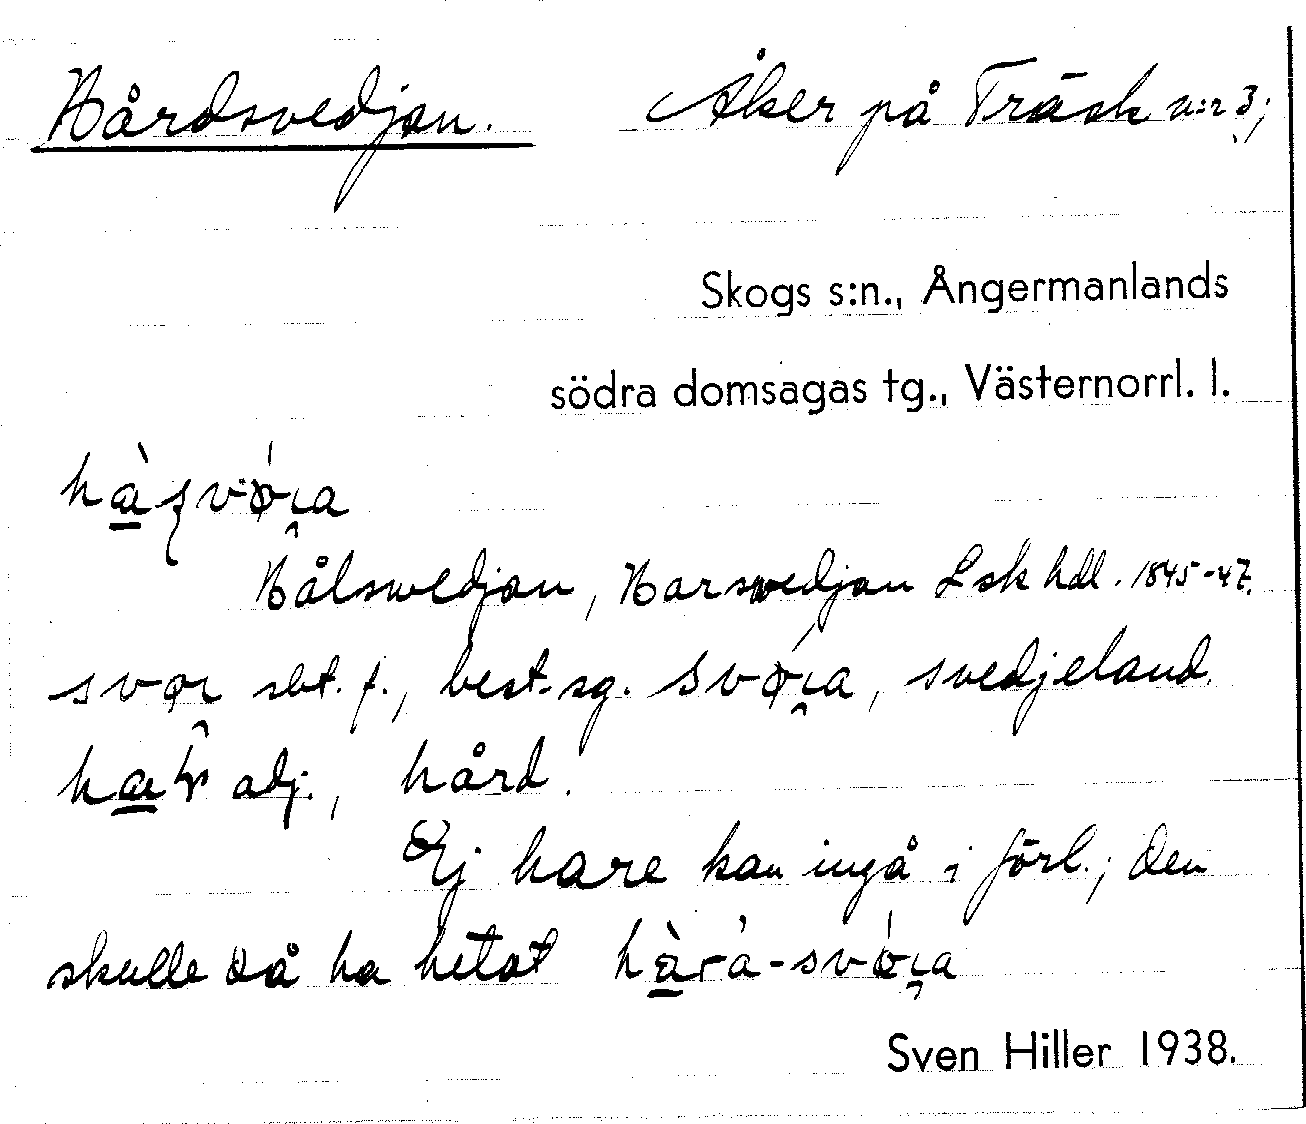 Hårdsvedjan. Åker på Träsk n:r 3;
Skogs s:n., Ångermanlands
södra domsagas tg., Västernorrl. l.
Hålswedjan, Harswedjan Lsk hdl. 1845-47.
sbt. f., best. sg. svedjeland.
adj., hård.
Ej hare kan ingå i förl.; den
skulle då ha hetat
Sven Hiller 1938.